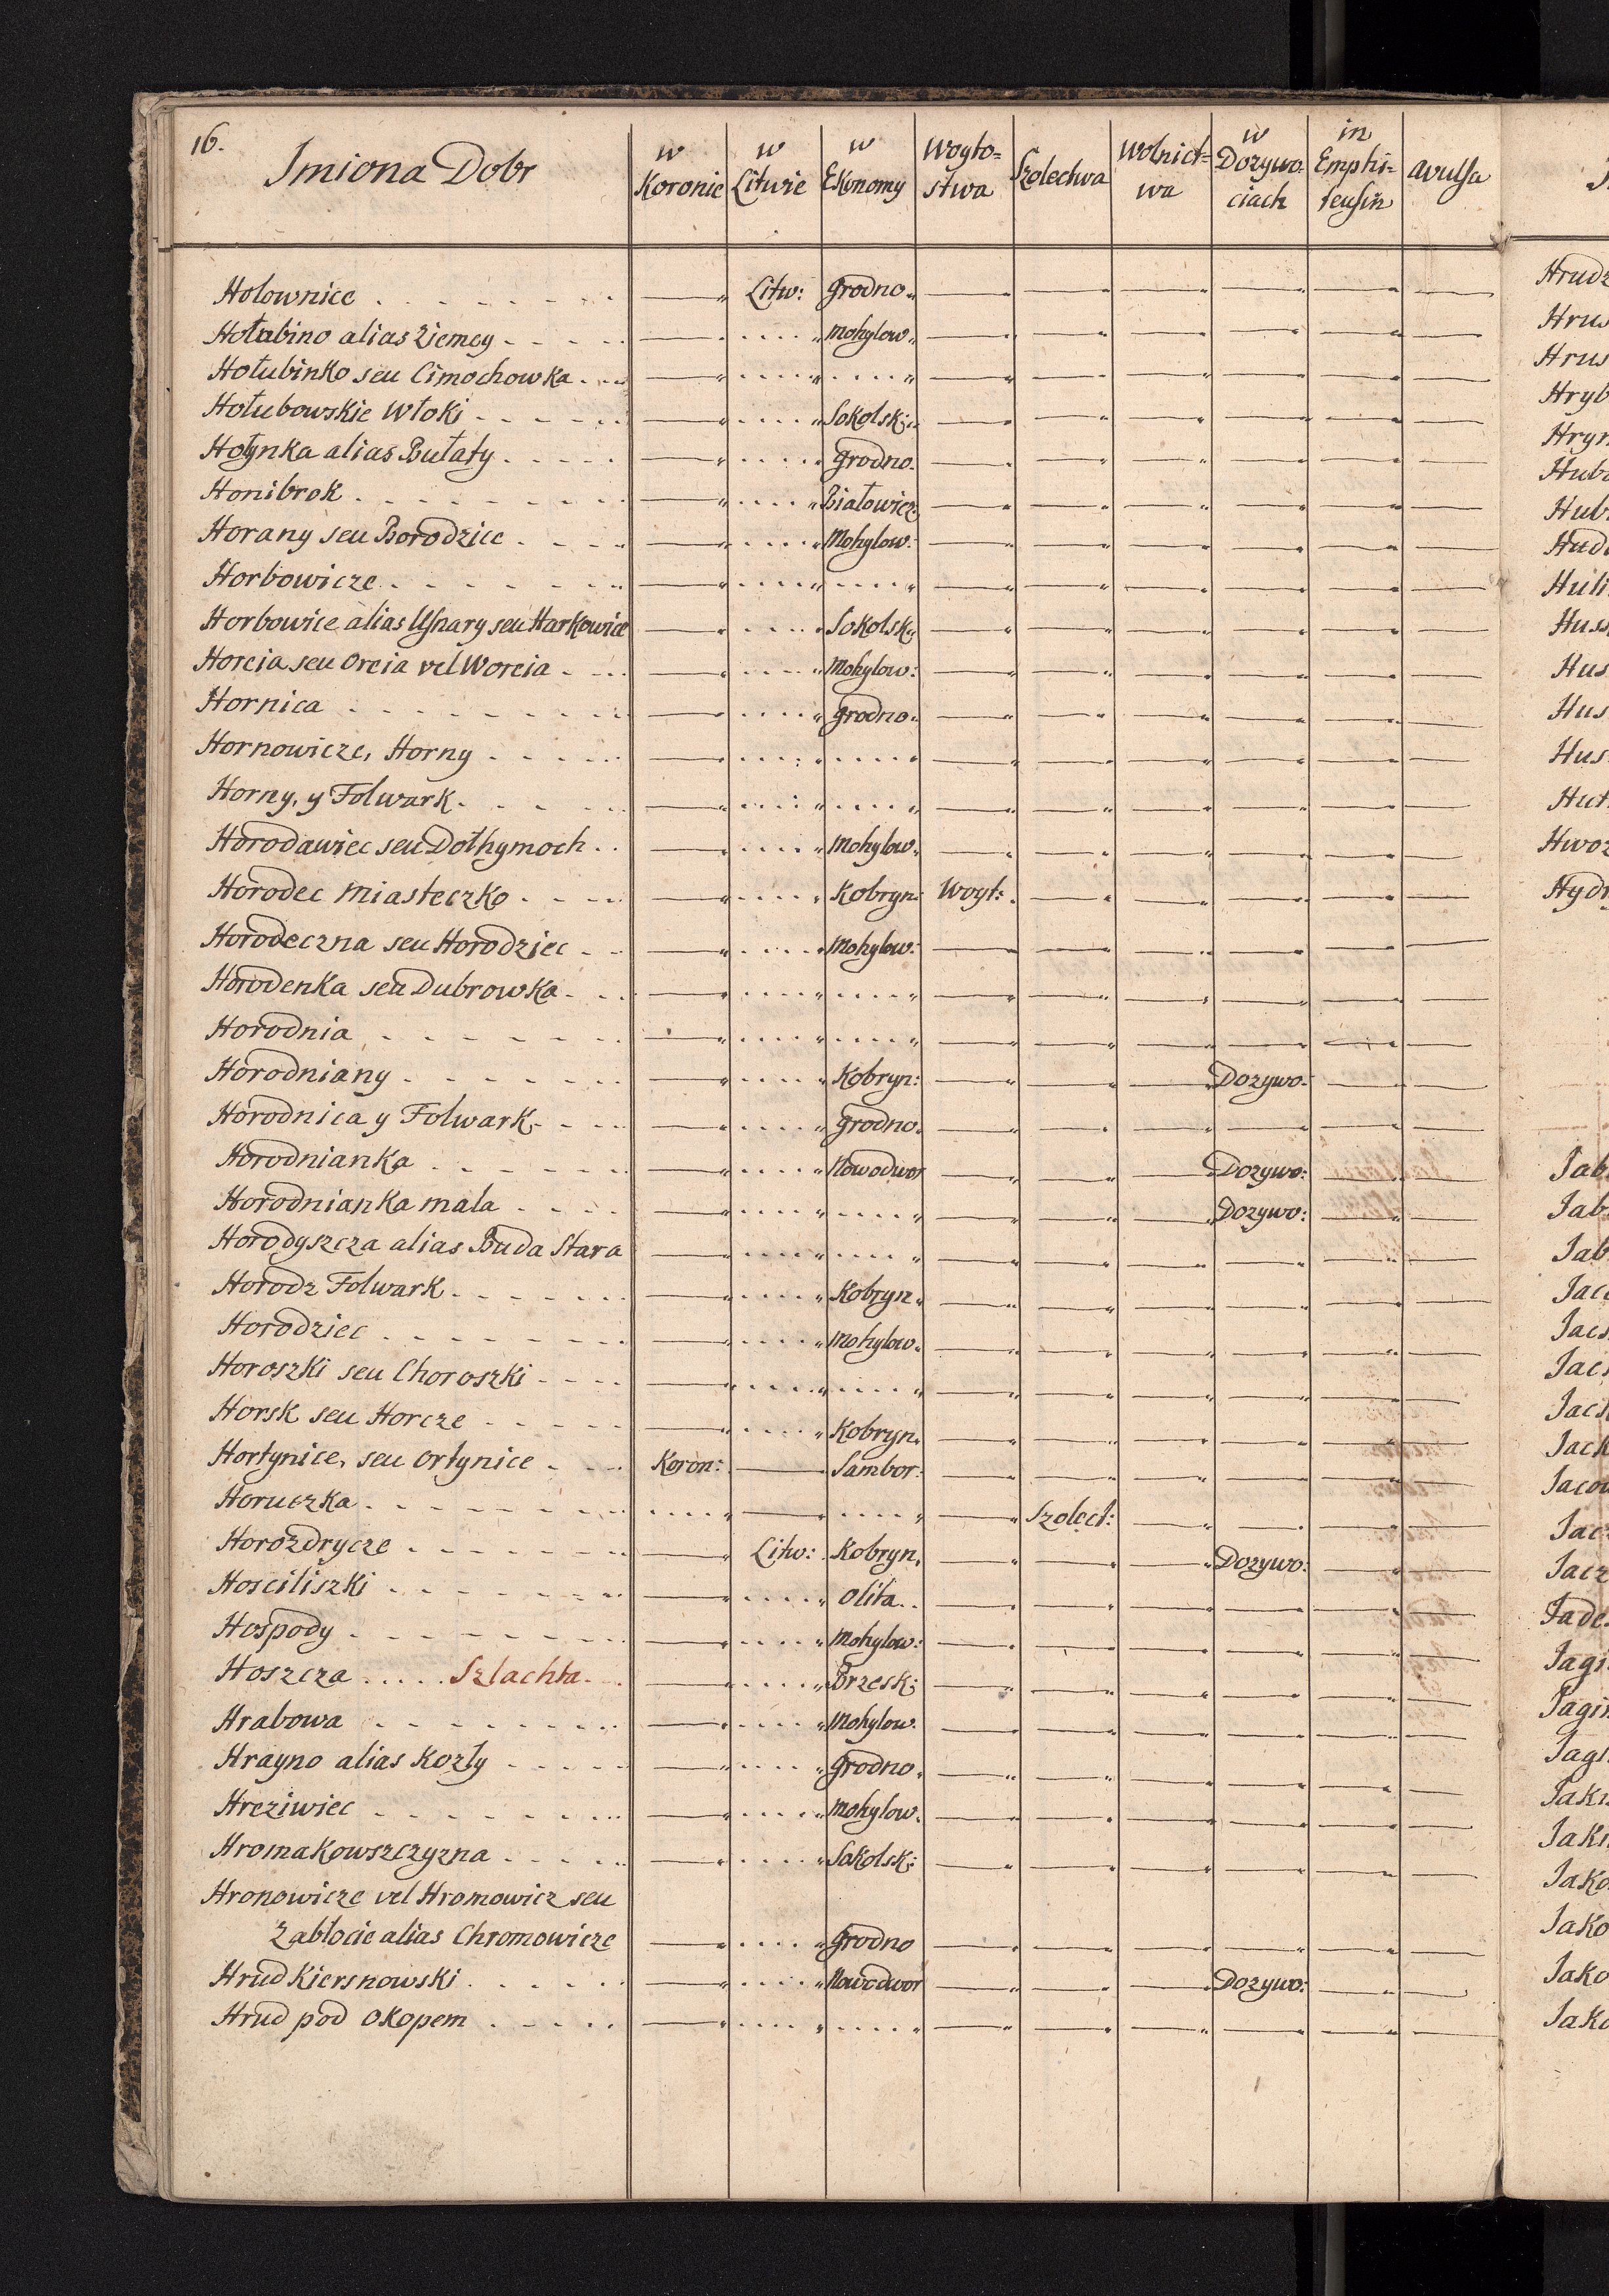 16.
Imiona Dobr | w Koronie | w Litwie | w Ekonomy | Woyto=stwa | Szolectwa | Wolnict=wa | w Dozywo=ciach | in Emphi=teusin | avulsa
Holownice | Litw: | Grodno
Hołubino alias Ziemcy | Mohylow
Hołubinko seu Cimochowka
Hołubowskie Włoki | Sokolsk:
Hołynka alias Bułaty | Grodno
Honibrok | Białowicz
Horany seu Borodzice | Mohylow:
Horbowicze
Horbowice alias Usnary seu Harkowice | Sokolsk:
Horcia seu Orcia vel Worcia | Mohylow:
Hornica | Grodno
Hornowicze, Horny
Horny, y Folwark
Horodawiec seu Dothymoch | Mohylow
Horodec Miasteczko | Kobryn: | Woyt:
Horodeczna seu Horodziec | Mohylow:
Horodenka seu Dubrowka
Horodnia
Horodniany | Kobryn: | Dozywo:
Horodnica y Folwark | Grodno
Horodnianka | Nowodwor | Dozywo:
Horodnianka mala | Dozywo:
Horodyszcza alias Buda Stara
Horodz Folwark | Kobryn
Horodziec | Mohylow
Horoszki seu Choroszki
Horsk seu Horcze | Kobryn
Hortynice, seu Ortynice | Koron: | Sambor
Horuczka | Szolect:
Horozdrycze | Litw: | Kobryn | Dozywo:
Hosciliszki | Olita
Hospody | Mohylow:
Hoszcza ..... Szlachta | Brzesk:
Hrabowa | Mohylow
Hrayno alias Kozły | Grodno
Hreziwiec | Mohylow
Hromakowszczyzna | Sokolsk:
Hronowicze vel Hromowicz seu
Zabłocie alias Chromowicze | Grodno
Hrud Kiersnowski | Nowodwor | Dozywo:
Hrud pod Okopem